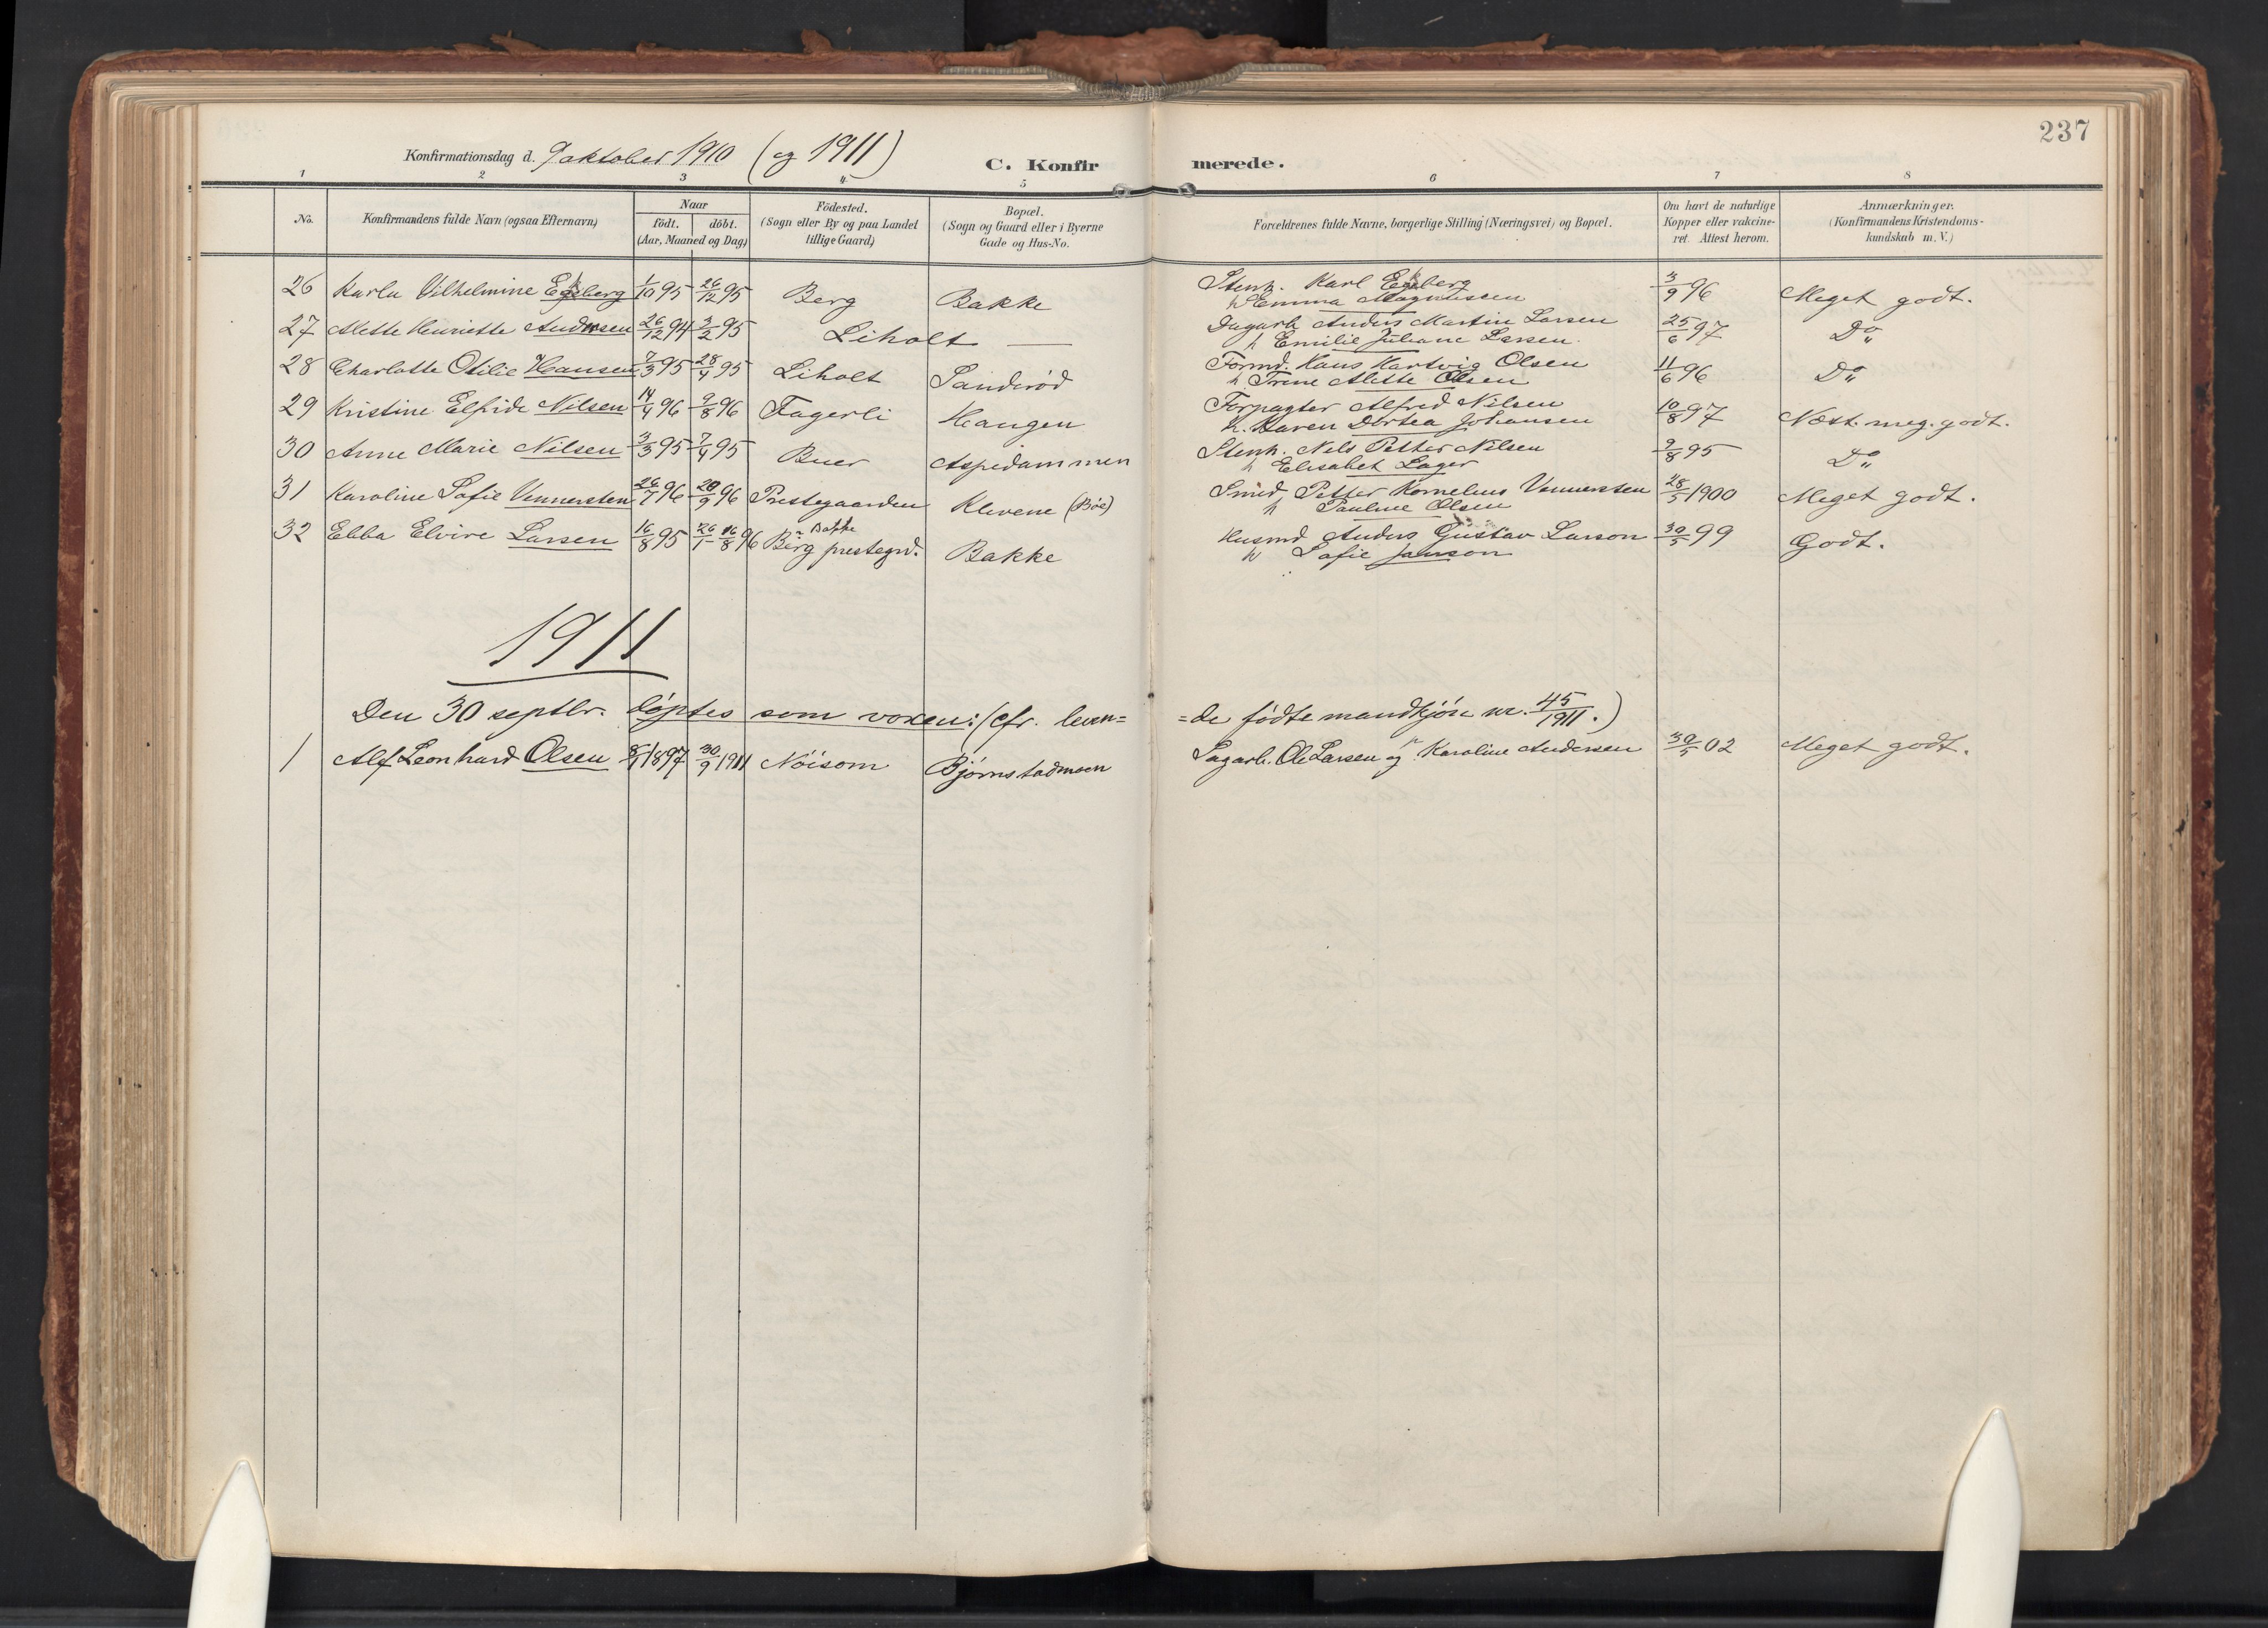 237
Konfirmationsdag d. 9 oktober 1910 (og 1911) C. Konfirmerede.
1 2 3 4 5 6 7 8
No. Konfirmandens fulde Navn (ogsaa Efternavn) Naar födt. döbt. (Aar, Maaned og Dag) Födested. (Sogn eller By og paa Landet tillige Gaard) Bopæl. (Sogn og Gaard eller i Byerne Gade og Hus-No. Forældrenes fulde Navne, borgerlige Stilling (Næringsvei) og Bopæl. Om havt de naturlige Kopper eller vakcineret. Attest herom. Anmærkninger. (Konfirmandens Kristendomskundskab m. V.)
26 Karla Vilhelmine Ekeberg 1/10 95 26/12 95 Berg Bakke Stenh. Karl Ekeberg 3/9 96 Meget godt.
h Emma Magnussen
27 Alette Henriette Andersen 26/12 94 3/2 95 Liholt — Dagarb Anders Martin Larsen 25/6 97 Do
h Emilie Juliane Larsen.
28 Charlotte Otilie Hansen 7/3 95 28/4 95 Liholt Sanderöd Formd. Hans Hartvig Olsen 11/6 96 Do
h Trine Alette Olsen
29 Kristine Elfride Nilsen 14/4 96 9/8 96 Fagerli Hangen Forpagter Alfred Nilsen 10/8 97 Næst. meg. godt.
h. Karen Dortea Johansen
30 Anne Marie Nilsen 3/3 95 7/4 95 Buer Aspedammen Stenh. Nils Petter Nilsen 9/8 95 Do
h Elisabet Lager
31 Karoline Sofie Vennersten 26/7 96 20/9 96 Prestegaarden Klevene (Böe) Smed Petter Kornelius Vennersten 28/5 1900 Meget godt.
h Pauline Olsen
32 Ebba Elvire Larsen 16/8 95 26/1 - 16/8 96 Bakke Berg prestegrd. Bakke Husmd Anders Gustav Larson 30/5 99 Godt.
h Sofie Janson
1911
Den 30 septbr. döptes som voxen: (cfr. leven= =de födte mandkjön nr. 45/1911.)
1 Alf Leonhard Olsen 8/1 1897 30/9 1911 Nöisom Bjørnstadmoen Sagarb. Ole Larsen og h Karoline Andersen 30/5 02 Meget godt.